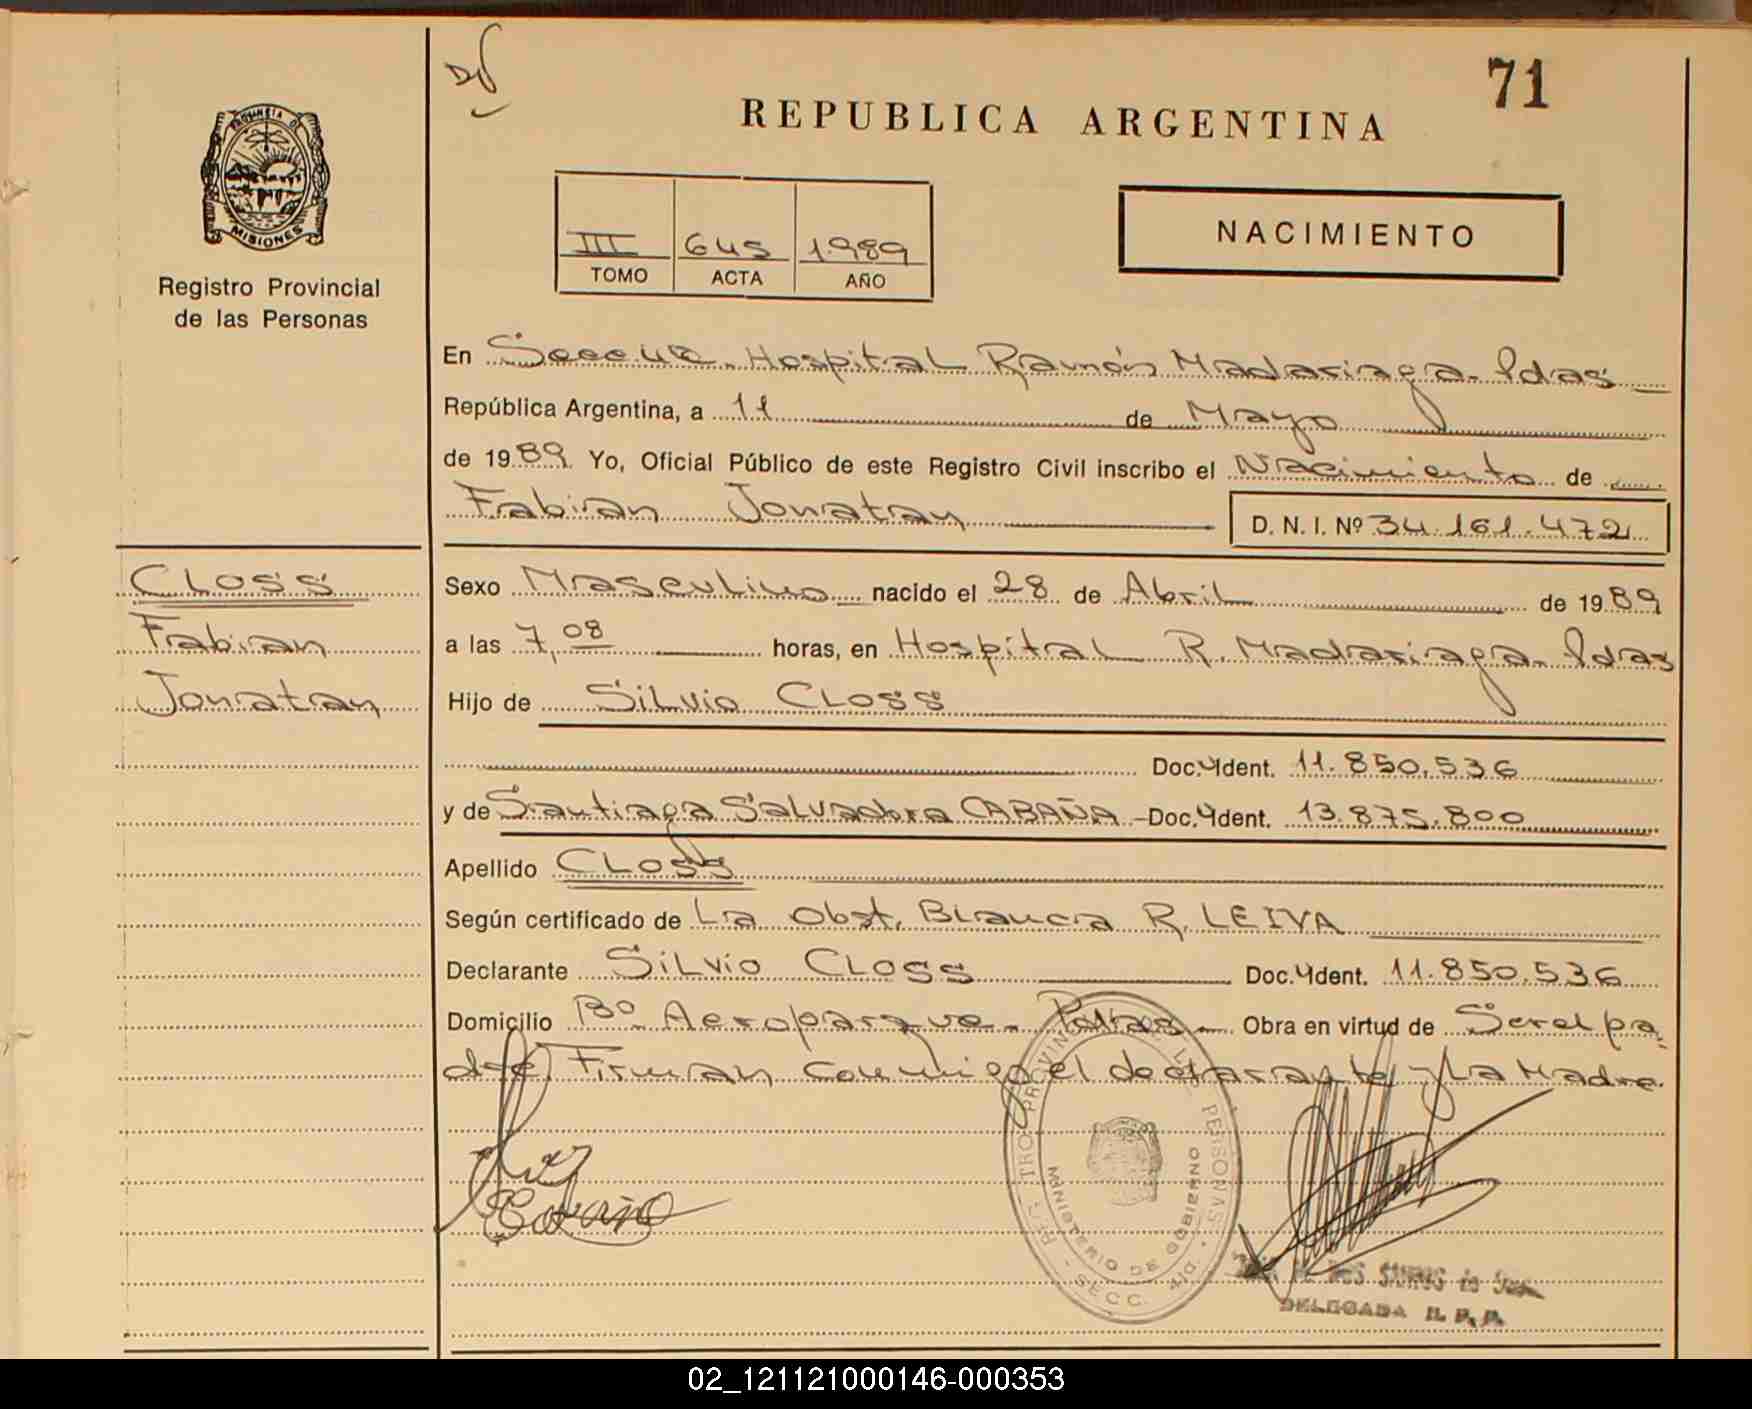 71
REPUBLICA ARGENTINA
PROVINCIA DE
MISIONES
Registro Provincial
de las Personas
III 645 1.989
TOMO ACTA AÑO
NACIMIENTO
En Secc 4ta. Hospital Ramón Madariaga. Pdas
República Argentina, a 11 de Mayo
de 1989. Yo, Oficial Público de este Registro Civil inscribo el Nacimiento de
Fabian Jonatan D. N. I. Nº 34.161.472
CLOSS
Fabian
Jonatan
Sexo Masculino nacido el 28 de Abril de 1989
a las 7,08 horas, en Hospital R. Madariaga. Pdas
Hijo de Silvio CLOSS
Doc. Ident. 11.850.536
y de Santiaga Salvadora CABAÑA - Doc. Ident. 13.875.800
Apellido CLOSS
Según certificado de La Obst. Blanca R. LEIVA
Declarante Silvio CLOSS Doc. Ident. 11.850.536
Domicilio Bº Aeroparque. Pdas. Obra en virtud de Ser el pa
dre. Firman conmigo el declarante y La Madre.
MINISTERIO DE GOBIERNO
SECC. 4ta
DOS SANTOS de
DELEGADA R. P. P.
02_121121000146-000353